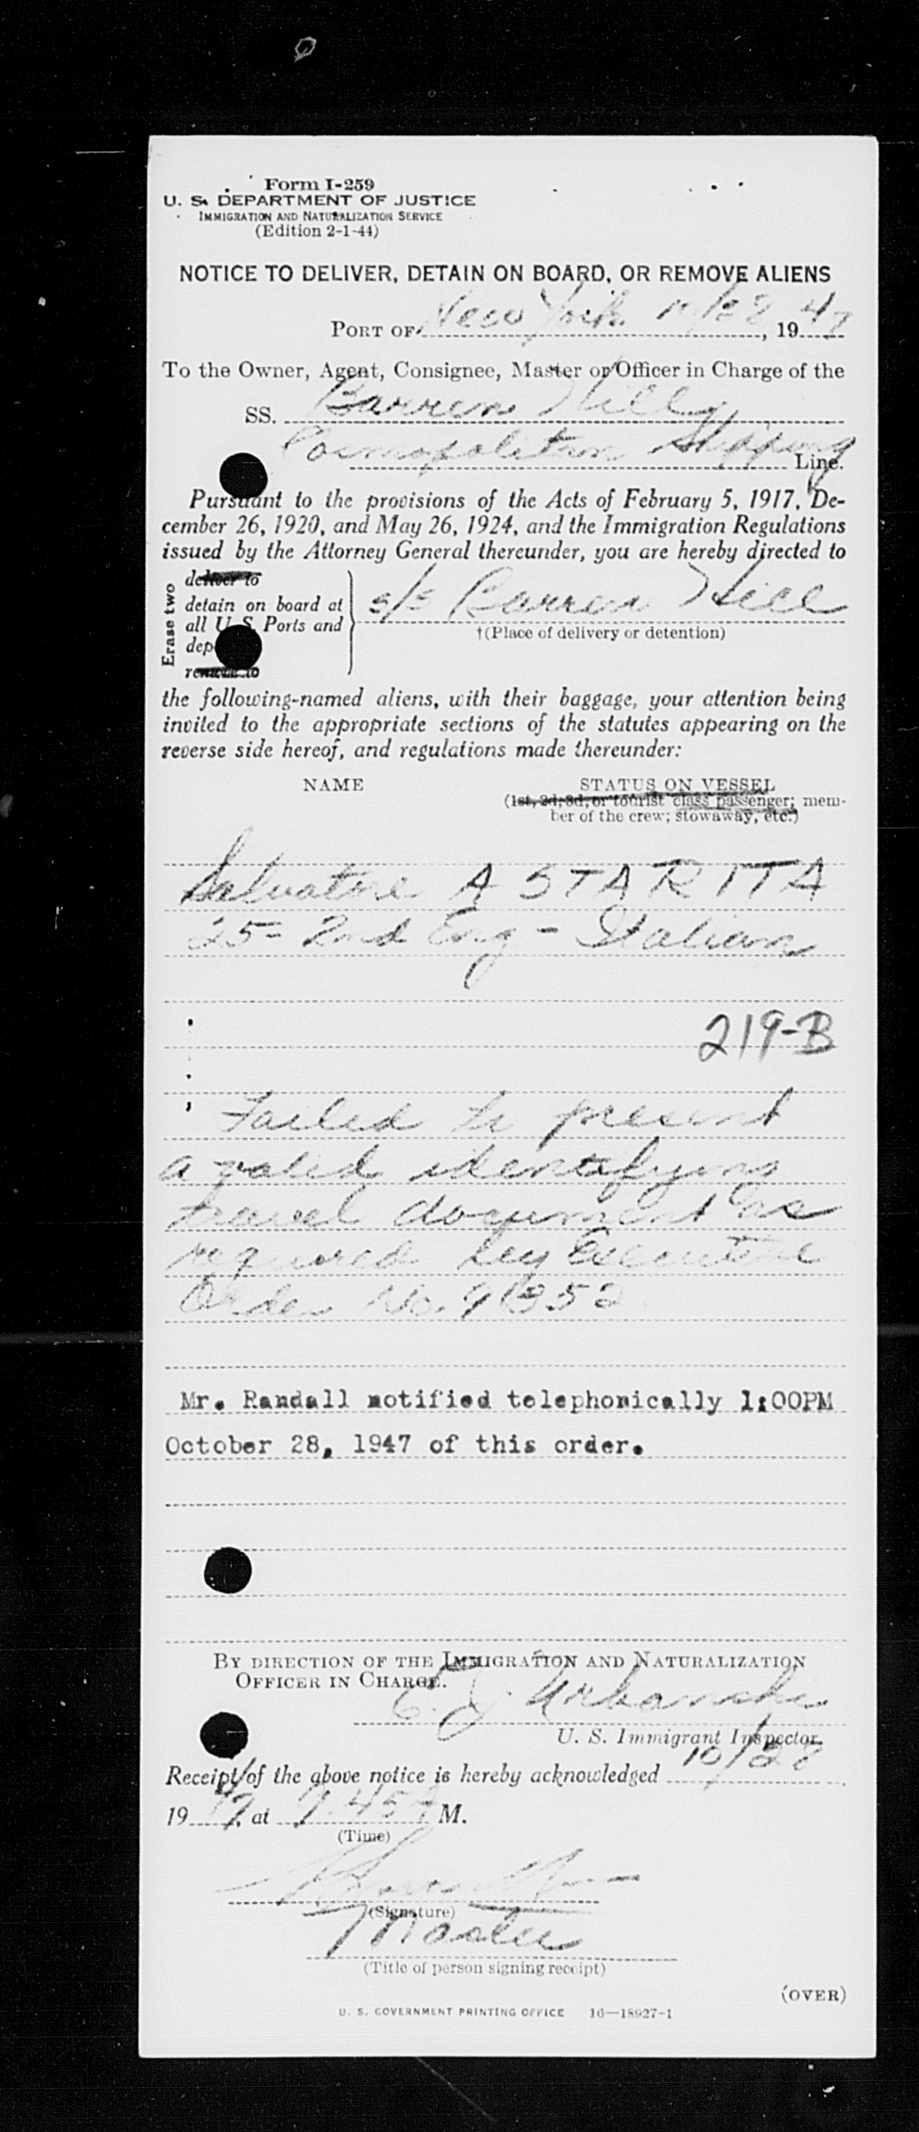 Form I-259
U. S. DEPARTMENT OF JUSTICE
IMMIGRATION AND NATURALIZATION SERVICE
(Edition 2-1-44)
NOTICE TO DELIVER, DETAIN ON BOARD, OR REMOVE ALIENS
PORT OF New York 10/28, 1947
To the Owner, Agent, Consignee, Master or Officer in Charge of the
SS. Barren Hill
Cosmopolitan Shipping Line.
Pursuant to the provisions of the Acts of February 5, 1917, De-
cember 26, 1920, and May 26, 1924, and the Immigration Regulations
issued by the Attorney General thereunder, you are hereby directed to
Erase two
deliver to
detain on board at
all U. S. Ports and
dep
remove to
s/s Barren Hill
†(Place of delivery or detention)
the following-named aliens, with their baggage, your attention being
invited to the appropriate sections of the statutes appearing on the
reverse side hereof, and regulations made thereunder:
NAME STATUS ON VESSEL
(1st, 2d, 3d, or tourist class passenger; mem-
ber of the crew; stowaway, etc.)
Salvatore ASTARITA
25 - 2nd Eng - Italian
219-B
Failed to present
a valid identifying
travel document as
required by Executive
Order No. 9352
Mr. Randall notified telephonically 1:00PM
October 28, 1947 of this order.
BY DIRECTION OF THE IMMIGRATION AND NATURALIZATION
OFFICER IN CHARGE.
J. Urbanski
U. S. Immigrant Inspector.
Receipt of the above notice is hereby acknowledged 10/28
1947, at 7:45 P M.
(Time)
(Signature)
Master
(Title of person signing receipt)
(OVER)
U. S. GOVERNMENT PRINTING OFFICE 16—18927-1